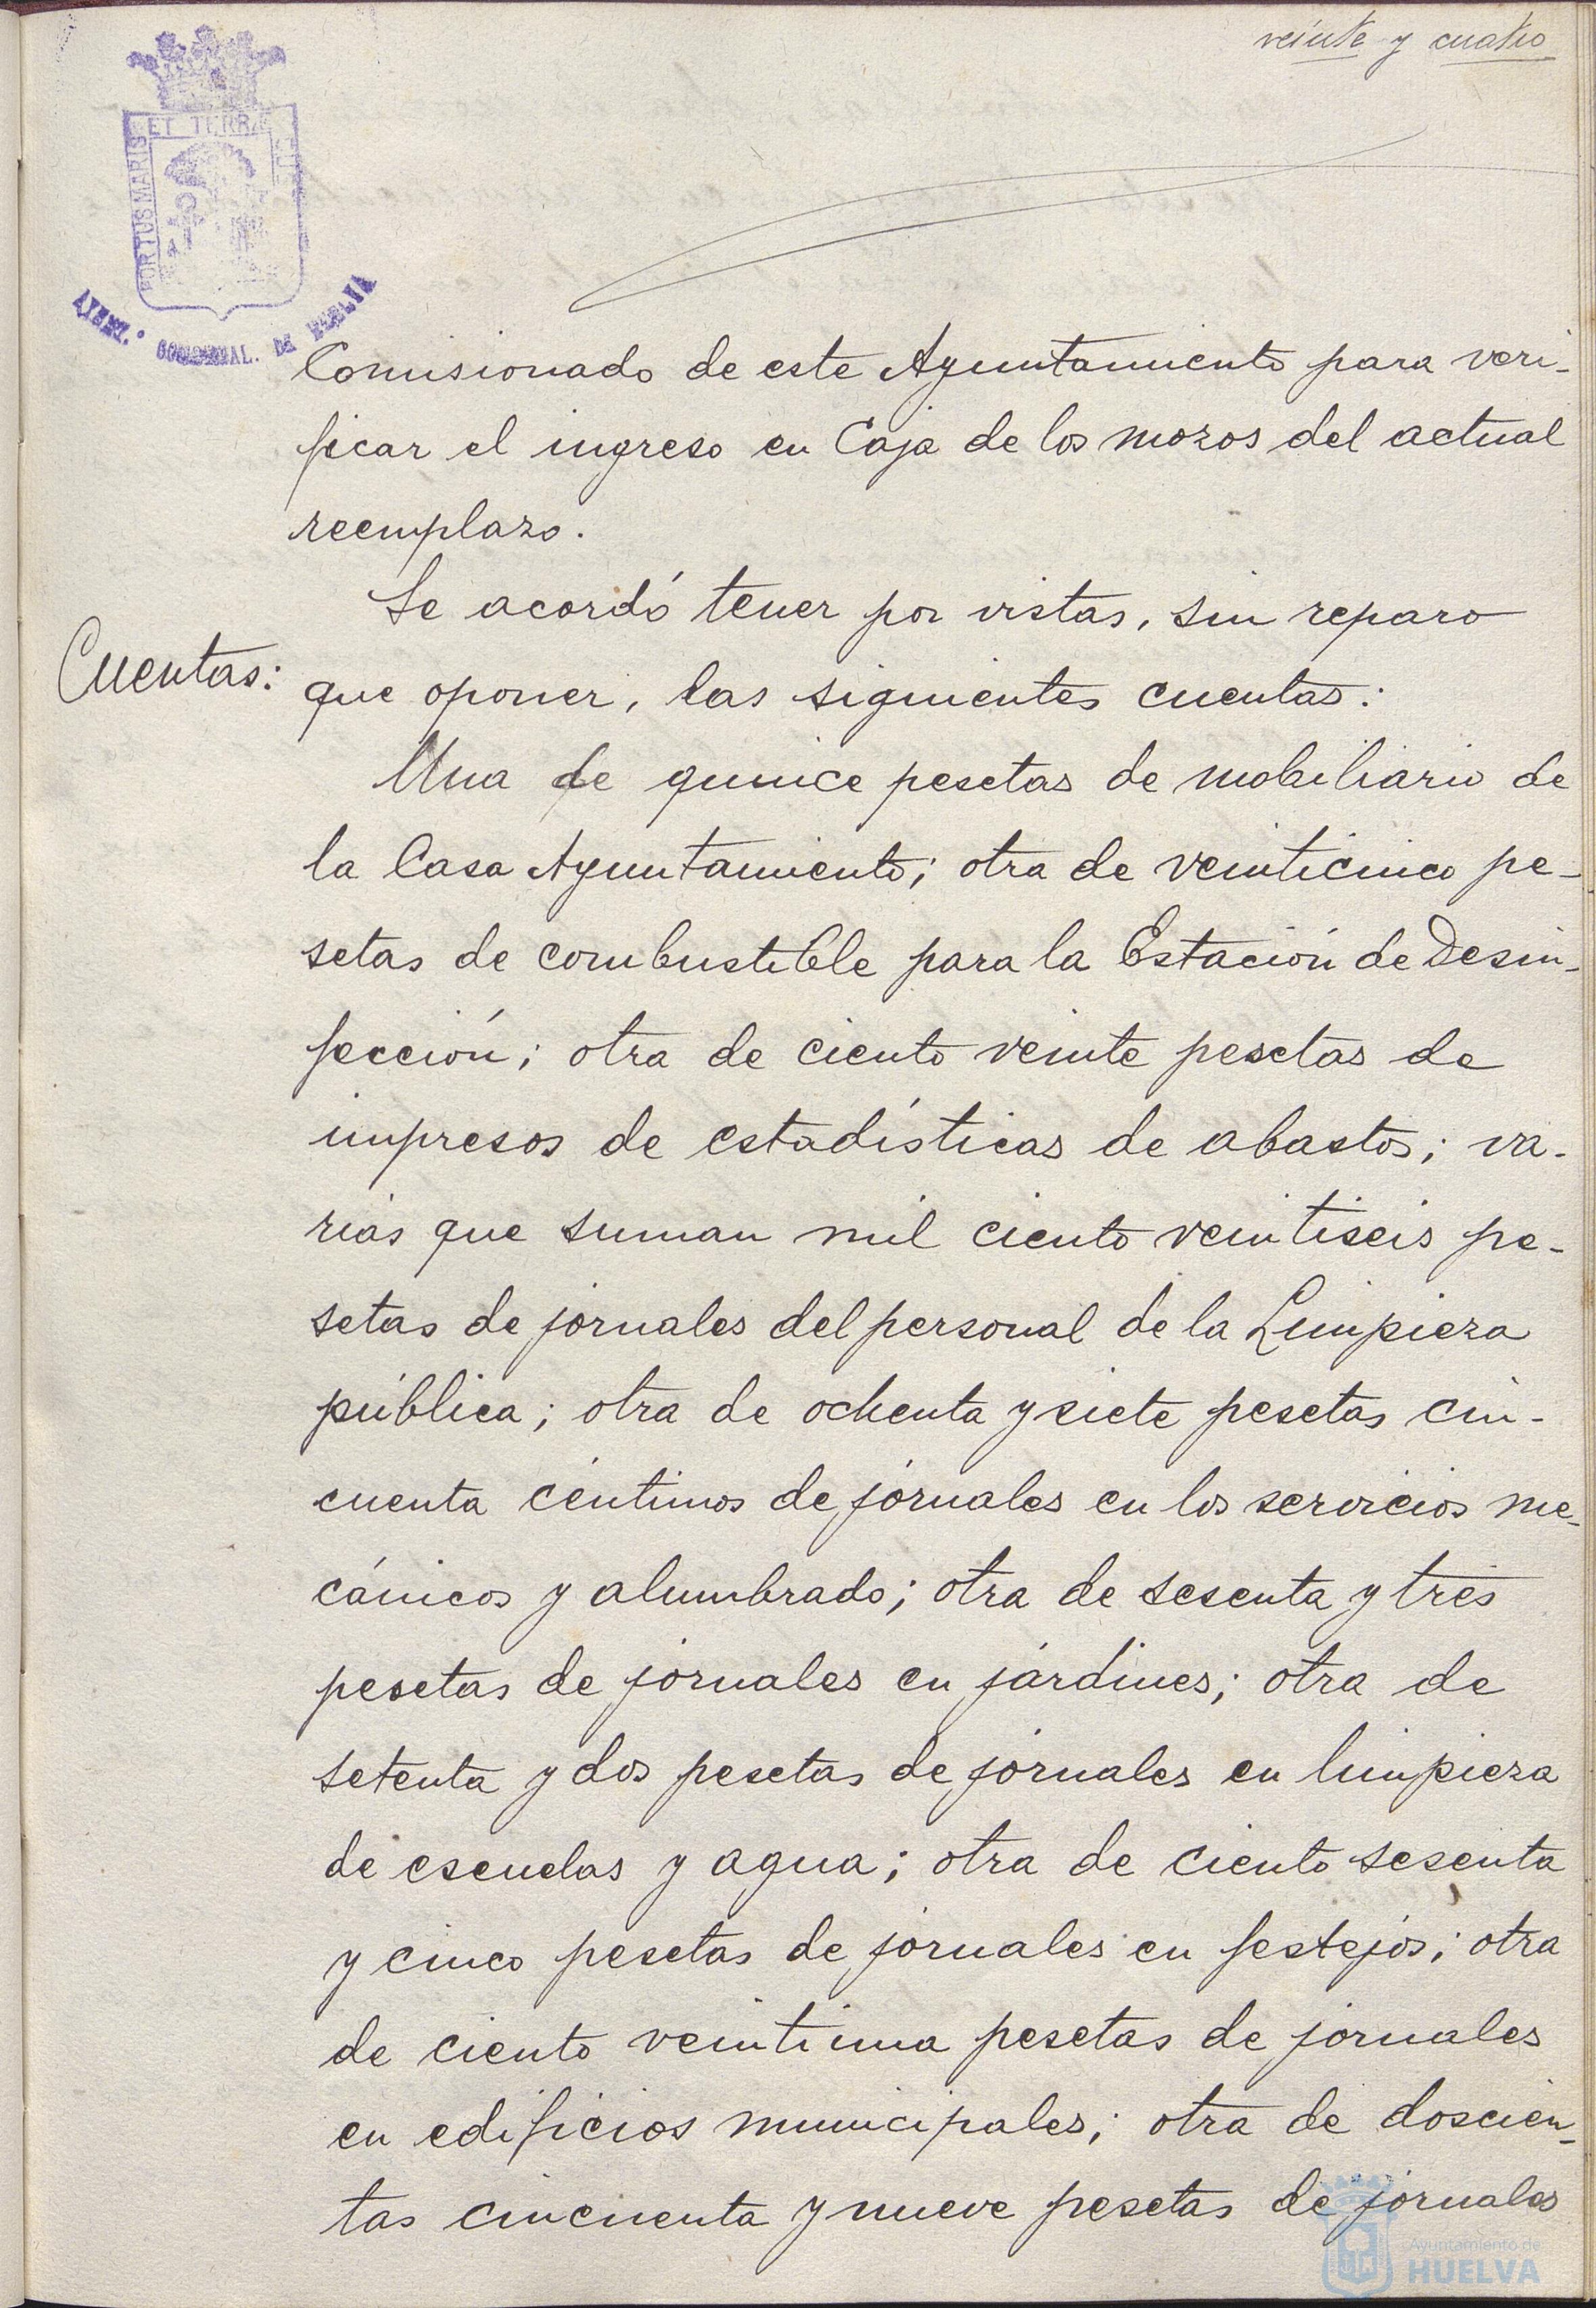 veinte y cuatro
PORTUS MARIS ET TERRÆ
Comisionado de este Ayuntamiento para veri-
ficar el ingreso en Caja de los mozos del actual
reemplazo.
Se acordó tener por vistas, sin reparo
Cuentas:
que oponer, las siguientes cuentas:
Una de quince pesetas de mobiliario de
la Casa Ayuntamiento; otra de veinticinco pe-
setas de combustible para la Estación de Desin-
fección; otra de ciento veinte pesetas de
impresos de estadísticas de abastos; va-
rias que suman mil ciento veintiseis pe-
setas de jornales del personal de la Limpieza
pública; otra de ochenta y siete pesetas cin-
cuenta céntimos de jornales en los servicios me-
cánicos y alumbrado; otra de sesenta y tres
pesetas de jornales en jardines; otra de
setenta y dos pesetas de jornales en limpieza
de escuelas y agua; otra de ciento sesenta
y cinco pesetas de jornales en festejos; otra
de ciento veintiuna pesetas de jornales
en edificios municipales; otra de doscien-
tas cincuenta y nueve pesetas de jornales
Ayuntamiento de
HUELVA